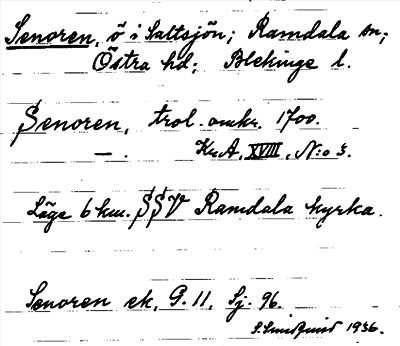 Senoren, ö i Saltsjön; Ramdala sn;
Östra hd; Blekinge l.
Senoren, trol. omkr. 1700.
— . Kr.A. XVIII, N:o 3.
Läge 6 km. SSV Ramdala kyrka.
Senoren ek. G. 11, Sj. 96.
1936.